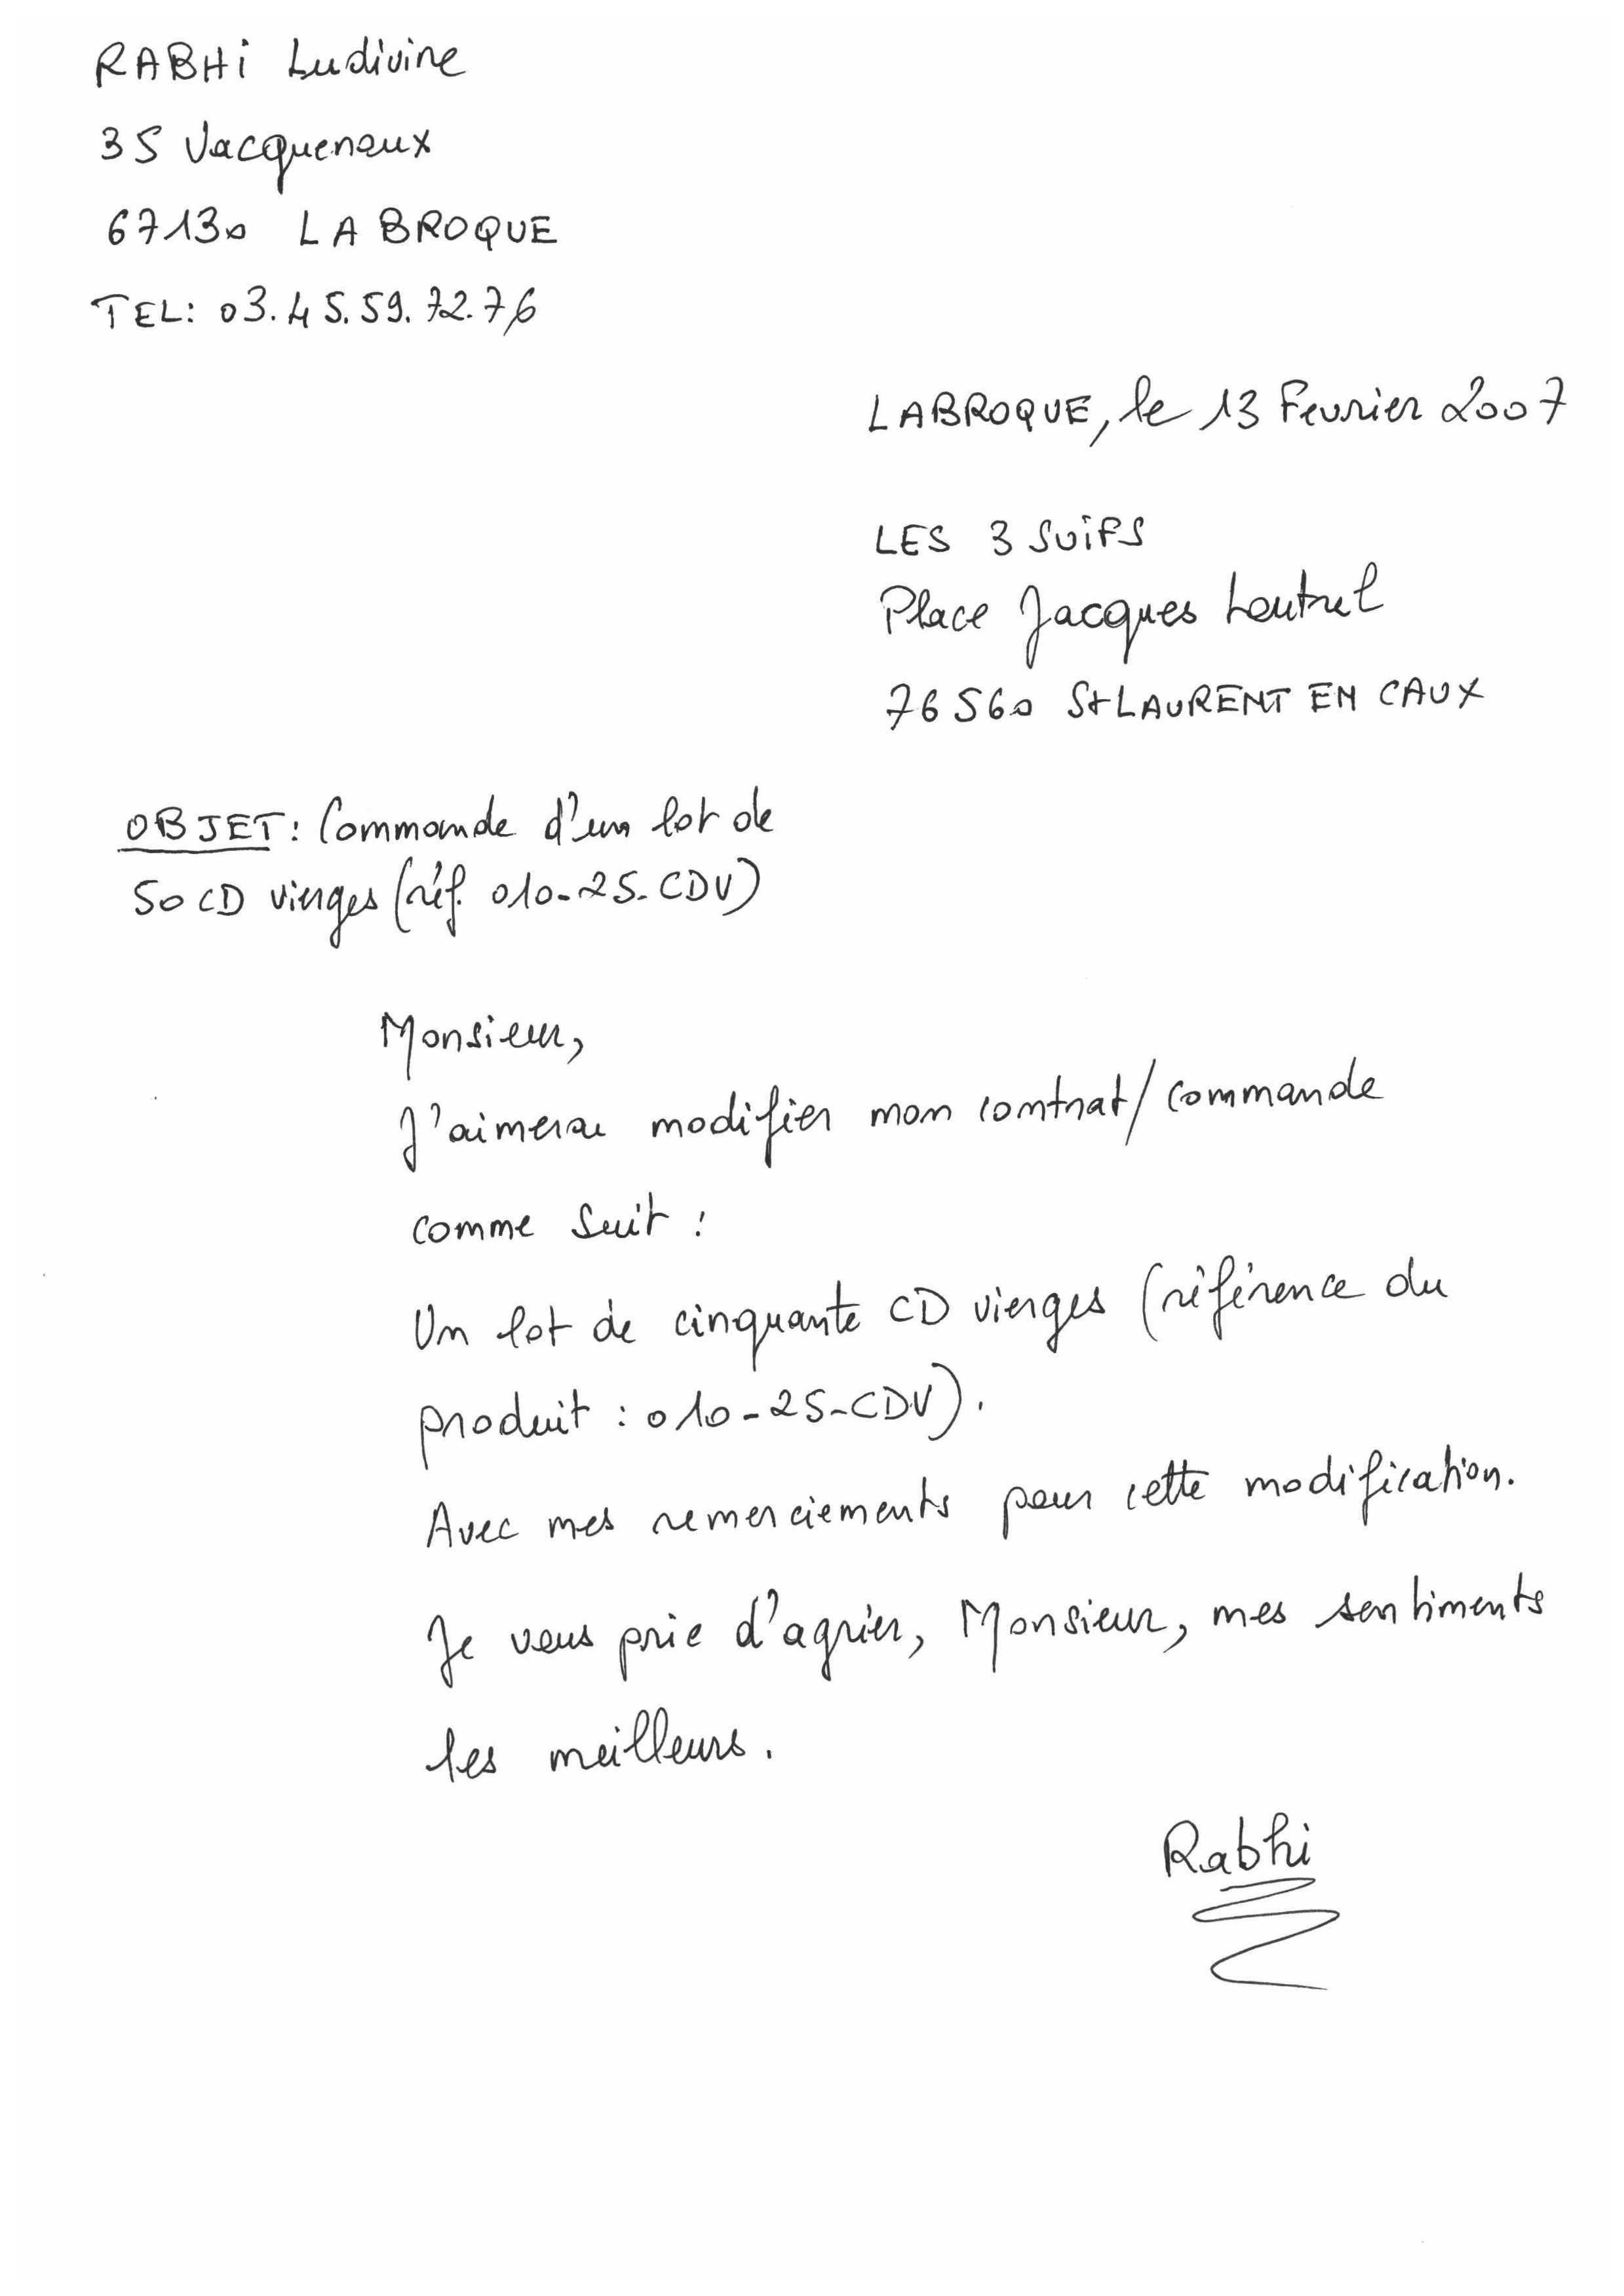 RABHi Ludivine
35 Vacquenoux
67130 LA BROQUE
TEL: 03.45.59.72.76
LABROQUE, le 13 Fevrier 2007
LES 3 SUiFS
Place Jacques Loutrel
76560 St LAURENT EN CAUX
OBJET: Commande d'un lot de
50 CD vierges (réf. 010-25-CDV)
Monsieur,
J'aimerai modifier mon contrat/commande
comme suit :
Un lot de cinquante CD vierges (référence du
produit : 010-25-CDV).
Avec mes remerciements pour cette modification.
Je vous prie d'agréer, Monsieur, mes sentiments
les meilleurs.
Rabhi